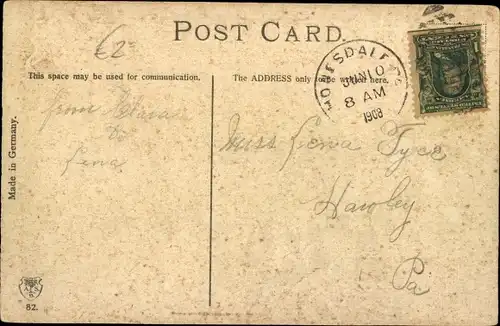 POST CARD.
€2-
This space may be used for communication.
The ADDRESS only to be written here.
HONESDALE PA.
JUN 10
8 AM
1908
from Clara
to
Lena
Miss Lena Tyce
Hawley
Pa
Made in Germany.
A.S.B.
52.